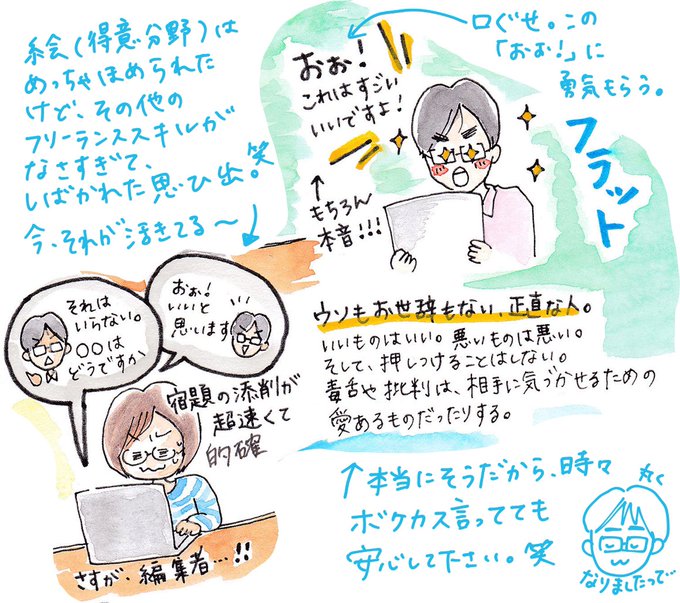 絵(得意分野)は
めっちゃほめられた
けど、その他の
フリーランススキルが
なさすぎて、
しばかれた思ひ出。笑
今、それが活きてる〜
口ぐせ。この
「おぉ!」に
勇気もらう。
おぉ!
これはすごい
いいですよ!
↑
もちろん
本音!!!
フラット
ウソもお世辞もない、正直な人。
いいものはいい。悪いものは悪い。
そして、押しつけることはしない。
毒舌や批判は、相手に気づかせるための
愛あるものだったりする。
それは
いらない。
○○は
どうですか
おぉ!
いいと
思います
宿題の添削が
超速くて
的確
さすが、編集者…!!
↑本当にそうだから、時々
ボケカス言ってても
安心して下さい。笑
丸く
なりましたって…